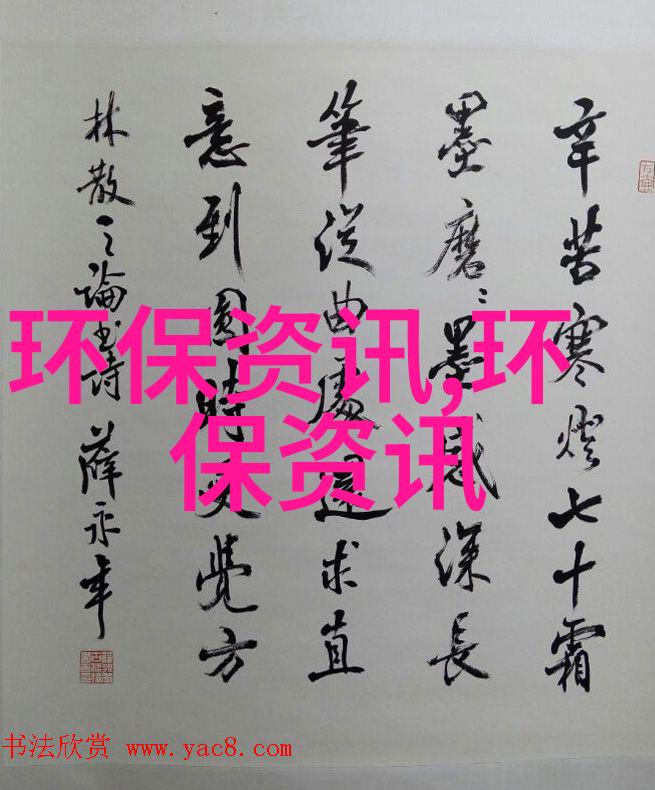 辛苦寒燈七十霜
墨磨〻墨感深長
筆從曲處還求直
意到圓時更覺方
林散之論書詩 薛永年
环保资讯,环
保资讯
书法欣赏 www.yac8.com